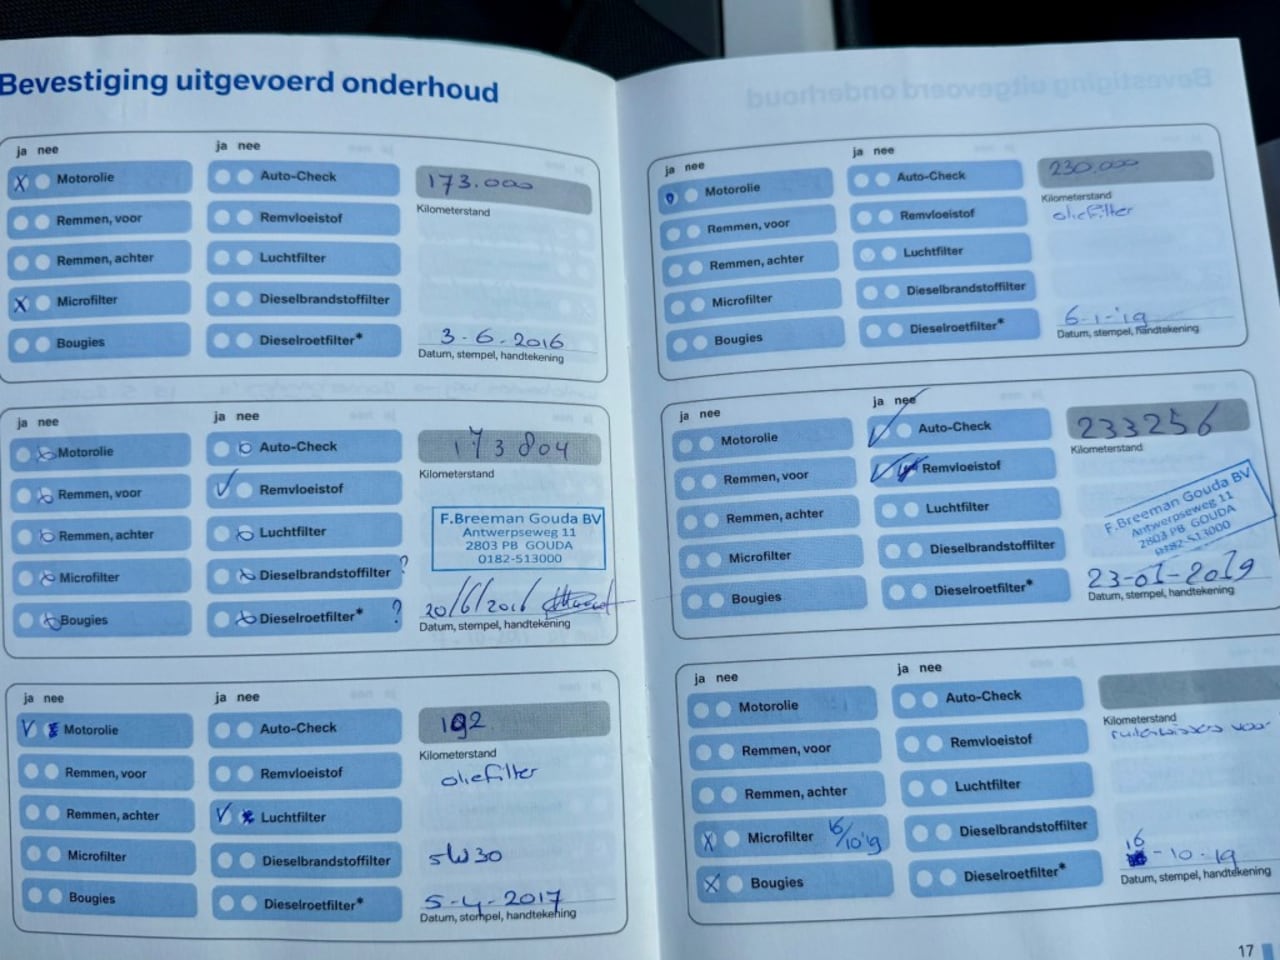 Bevestiging uitgevoerd onderhoud
ja nee
ja nee
X Motorolie
Auto-Check
173.000
Kilometerstand
Remmen, voor
Remvloeistof
Remmen, achter
Luchtfilter
X Microfilter
Dieselbrandstoffilter
Bougies
Dieselroetfilter*
3-6-2016
Datum, stempel, handtekening
ja nee
ja nee
Motorolie
Auto-Check
173804
Kilometerstand
Remmen, voor
Remvloeistof
Remmen, achter
Luchtfilter
F.Breeman Gouda BV
Antwerpseweg 11
2803 PB GOUDA
0182-513000
Microfilter
Dieselbrandstoffilter ?
Bougies
Dieselroetfilter* ?
20/6/2016
Datum, stempel, handtekening
ja nee
ja nee
Motorolie
Auto-Check
192
Kilometerstand
oliefilter
Remmen, voor
Remvloeistof
Remmen, achter
Luchtfilter
Microfilter
Dieselbrandstoffilter
5W30
Bougies
Dieselroetfilter*
5-4-2017
Datum, stempel, handtekening
Bevestiging uitgevoerd onderhoud
ja nee
ja nee
Motorolie
Auto-Check
230.000
Kilometerstand
oliefilter
Remmen, voor
Remvloeistof
Remmen, achter
Luchtfilter
Microfilter
Dieselbrandstoffilter
Bougies
Dieselroetfilter*
6-1-'19
Datum, stempel, handtekening
ja nee
ja nee
Motorolie
Auto-Check
233256
Kilometerstand
Remmen, voor
Remvloeistof
Remmen, achter
Luchtfilter
F.Breeman Gouda BV
Antwerpseweg 11
2803 PB GOUDA
0182-513000
Microfilter
Dieselbrandstoffilter
Bougies
Dieselroetfilter*
23-01-2019
Datum, stempel, handtekening
ja nee
ja nee
Motorolie
Auto-Check
Kilometerstand
ruitenwissers voor
Remmen, voor
Remvloeistof
Remmen, achter
Luchtfilter
X Microfilter 16/10'19
Dieselbrandstoffilter
X Bougies
Dieselroetfilter*
16
-10-19
Datum, stempel, handtekening
17